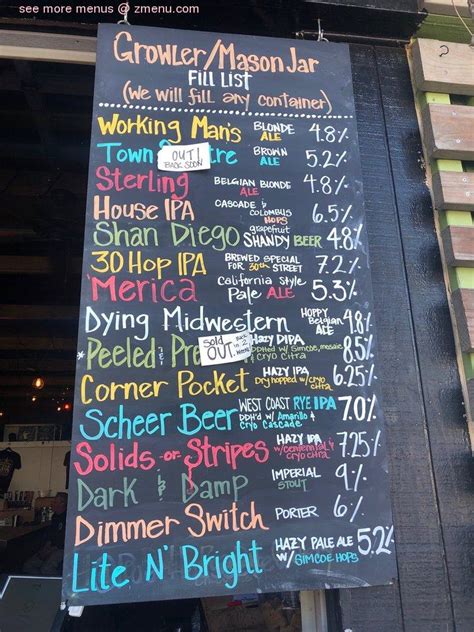 see more menus @ zmenu.com
Growler/Mason Jar
Fill List
(We will fill any container)
Working Man's BLONDE ALE 4.8%
Town tre BROWN ALE 5.2%
OUT!
BACK SOON
Sterling BELGIAN BLONDE ALE 4.8%
House IPA CASCADE & COLUMBUS HOPS 6.5%
Shan Diego grapefruit SHANDY BEER 4.8%
30 Hop IPA BREWED SPECIAL FOR 30th STREET 7.2%
'Merica California Style Pale ALE 5.3%
Dying Midwestern HOPPY Belgian ACE 4.8%
*Peeled & Pre HAZY DIPA DDH'd w/ Simcoe, mosaic & Cryo Citra 8.5%
Sold OUT. Back in 2 weeks
Corner Pocket HAZY IPA Dry hopped w/ cryo Citra 6.25%
Scheer Beer WEST COAST RYE IPA DDH'd w/ Amarillo & Cryo Cascade 7.0%
Solids or Stripes HAZY IPA w/ Centennial & Cryo Citra 7.25%
Dark & Damp IMPERIAL STOUT 9%
Dimmer Switch PORTER 6%
Lite N' Bright HAZY PALE ALE w/ SIMCOE HOPS 5.2%